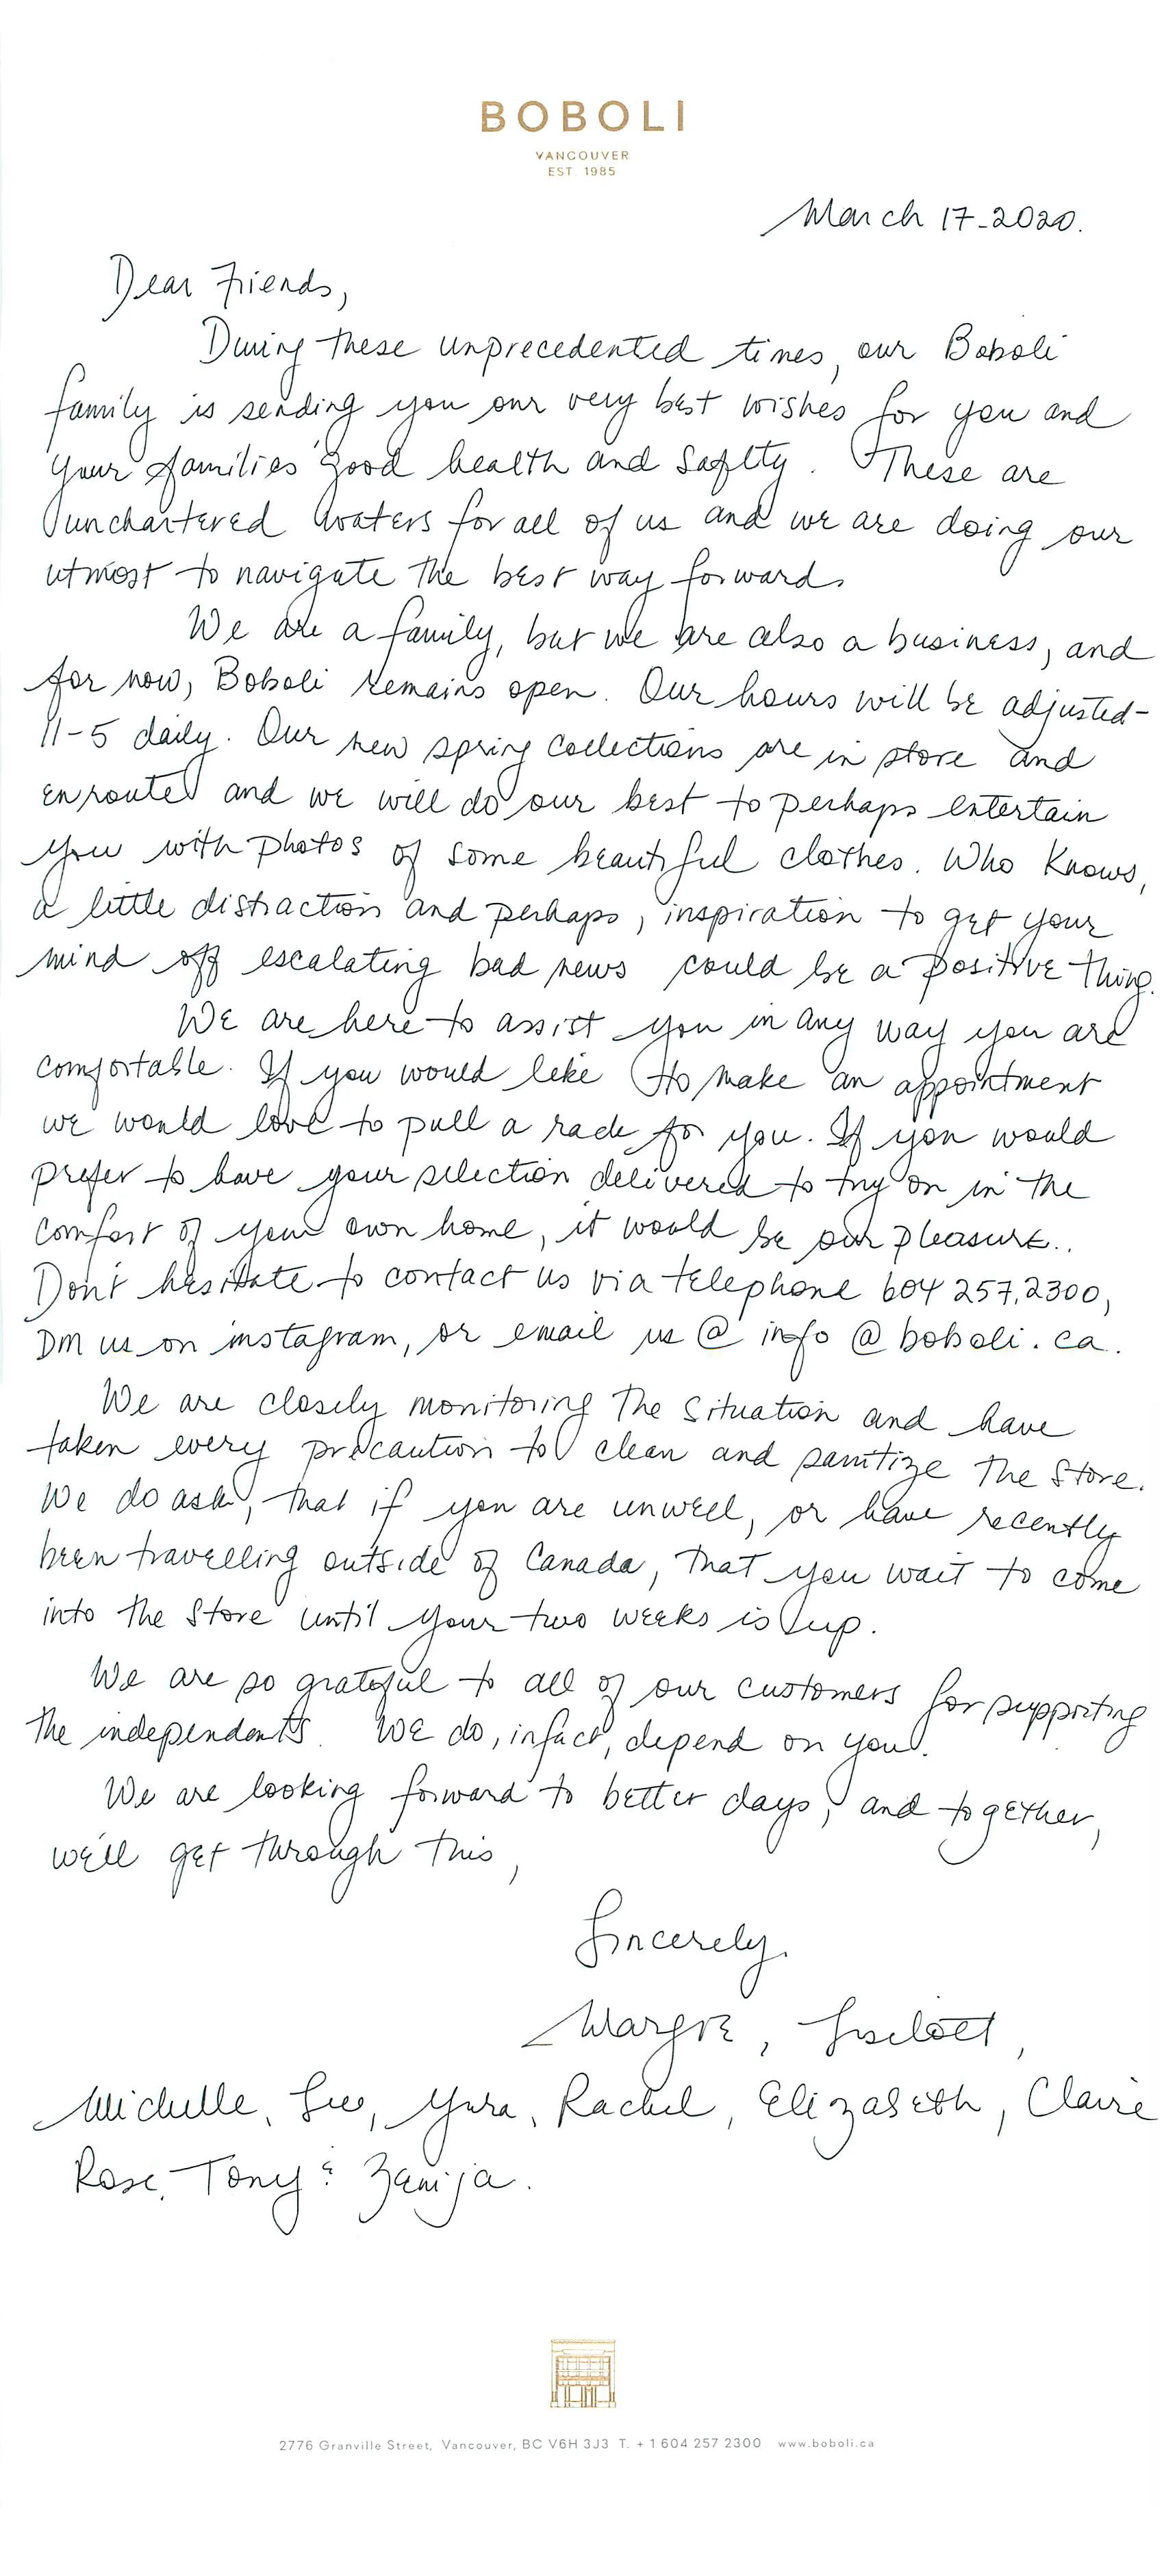 BOBOLI
VANCOUVER
EST 1985
March 17-2020.
Dear Friends,
During these unprecedented times, our Boboli
family is sending you our very best wishes for you and
your families' good health and safety. These are
unchartered waters for all of us and we are doing our
utmost to navigate the best way forward.
We are a family, but we are also a business, and
for now, Boboli remains open. Our hours will be adjusted-
11-5 daily. Our new spring collections are in store and
enroute and we will do our best to perhaps entertain
you with photos of some beautiful clothes. Who knows,
a little distraction and perhaps, inspiration to get your
mind off escalating bad news could be a positive thing.
We are here to assist you in any way you are
comfortable. If you would like to make an appointment
we would love to pull a rack for you. If you would
prefer to have your selection delivered to try on in the
comfort of your own home, it would be our pleasure..
Don't hesitate to contact us via telephone 604 257.2300,
DM us on instagram, or email us @ info @ boboli.ca.
We are closely monitoring the situation and have
taken every precaution to clean and sanitize the store.
We do ask, that if you are unwell, or have recently
been travelling outside of Canada, that you wait to come
into the store until your two weeks is up.
We are so grateful to all of our customers for supporting
the independents. We do, infact, depend on you.
We are looking forward to better days, and together,
we'll get through this,
Sincerely.
Margot,
Michelle, Yura, Rachel, Elizabeth, Claire
Rose, Tony &
2776 Granville Street, Vancouver, BC V6H 3J3 T. +1 604 257 2300 www.boboli.ca